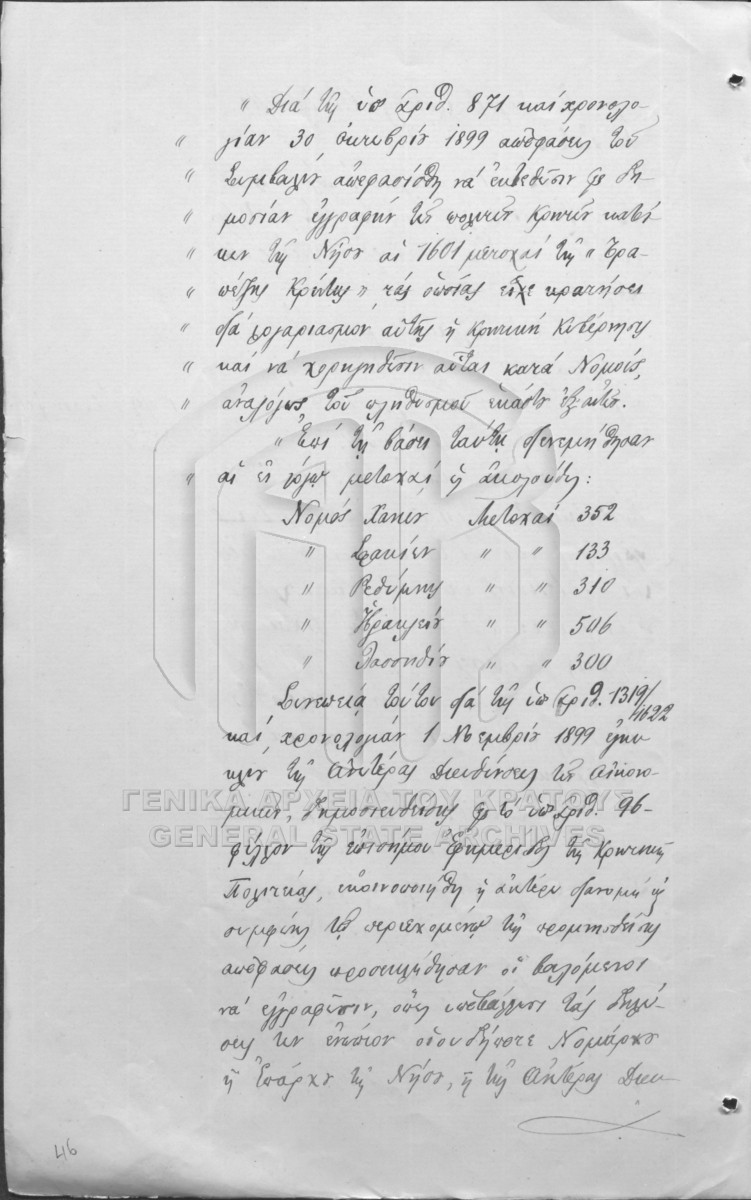 " Διὰ τῆς ὑπ' ἀριθ. 871 καὶ χρονολο-
" γίαν 30 Ὀκτωβρίου 1899 ἀποφάσεως τοῦ
" Συμβουλίου ἀπεφασίσθη νὰ ἐκτεθῶσιν εἰς δη-
" μοσίαν ἐγγραφὴν τῶν πολιτῶν Κρητῶν κατοί-
" κων τῆς Νήσου αἱ 1601 μετοχαὶ τῆς " Τρα-
" πέζης Κρήτης " τὰς ὁποίας εἶχε κρατήσει
" διὰ λογαριασμόν αὑτῆς ἡ Κρητικὴ Κυβέρνησις
" καὶ νὰ χορηγηθῶσιν αὗται κατὰ Νομούς,
" ἀναλόγως τοῦ πληθυσμοῦ ἑκάστου ἐξ αὐτῶν.
" Ἐπὶ τῇ βάσει ταύτῃ διενεμήθησαν
" αἱ ἐν λόγῳ μετοχαὶ ὡς ἀκολούθως:
Νομὸς Χανίων Μετοχαὶ 352
" Σφακίων " " 133
" Ρεθύμνης " " 310
" Ἡρακλείου " " 506
" Λασσηθίου " " 300
Συνεπείᾳ τούτου διὰ τῆς ὑπ' ἀριθ. 1319/1622
καὶ χρονολογίαν 1 Νοεμβρίου 1899 ἐγκυ-
κλίου τῆς Ἀνωτέρας Διευθύνσεως τῶν Οἰκονο-
μικῶν, δημοσιευθείσης εἰς τὸ ὑπ' ἀριθ. 96-
φύλλον τῆς ἐπισήμου Ἐφημερίδος τῆς Κρητικῆς
Πολιτείας, ἐκοινοποιήθη ἡ ἀνωτέρω διανομὴ καὶ
συμφώνως τῷ περιεχομένῳ τῆς προμνησθείσης
ἀποφάσεως προσεκλήθησαν οἱ βουλόμενοι
νὰ ἐγγραφῶσιν, ὅπως ὑποβάλλωσι τὰς δηλώ-
σεις των ἐνώπιον οἱουδήποτε Νομάρχου
ἢ Ἐπάρχου τῆς Νήσου, ἢ τῆς Ἀνωτέρας Διευ-
46
ΓΕΝΙΚΑ ΑΡΧΕΙΑ ΤΟΥ ΚΡΑΤΟΥΣ
GENERAL STATE ARCHIVES